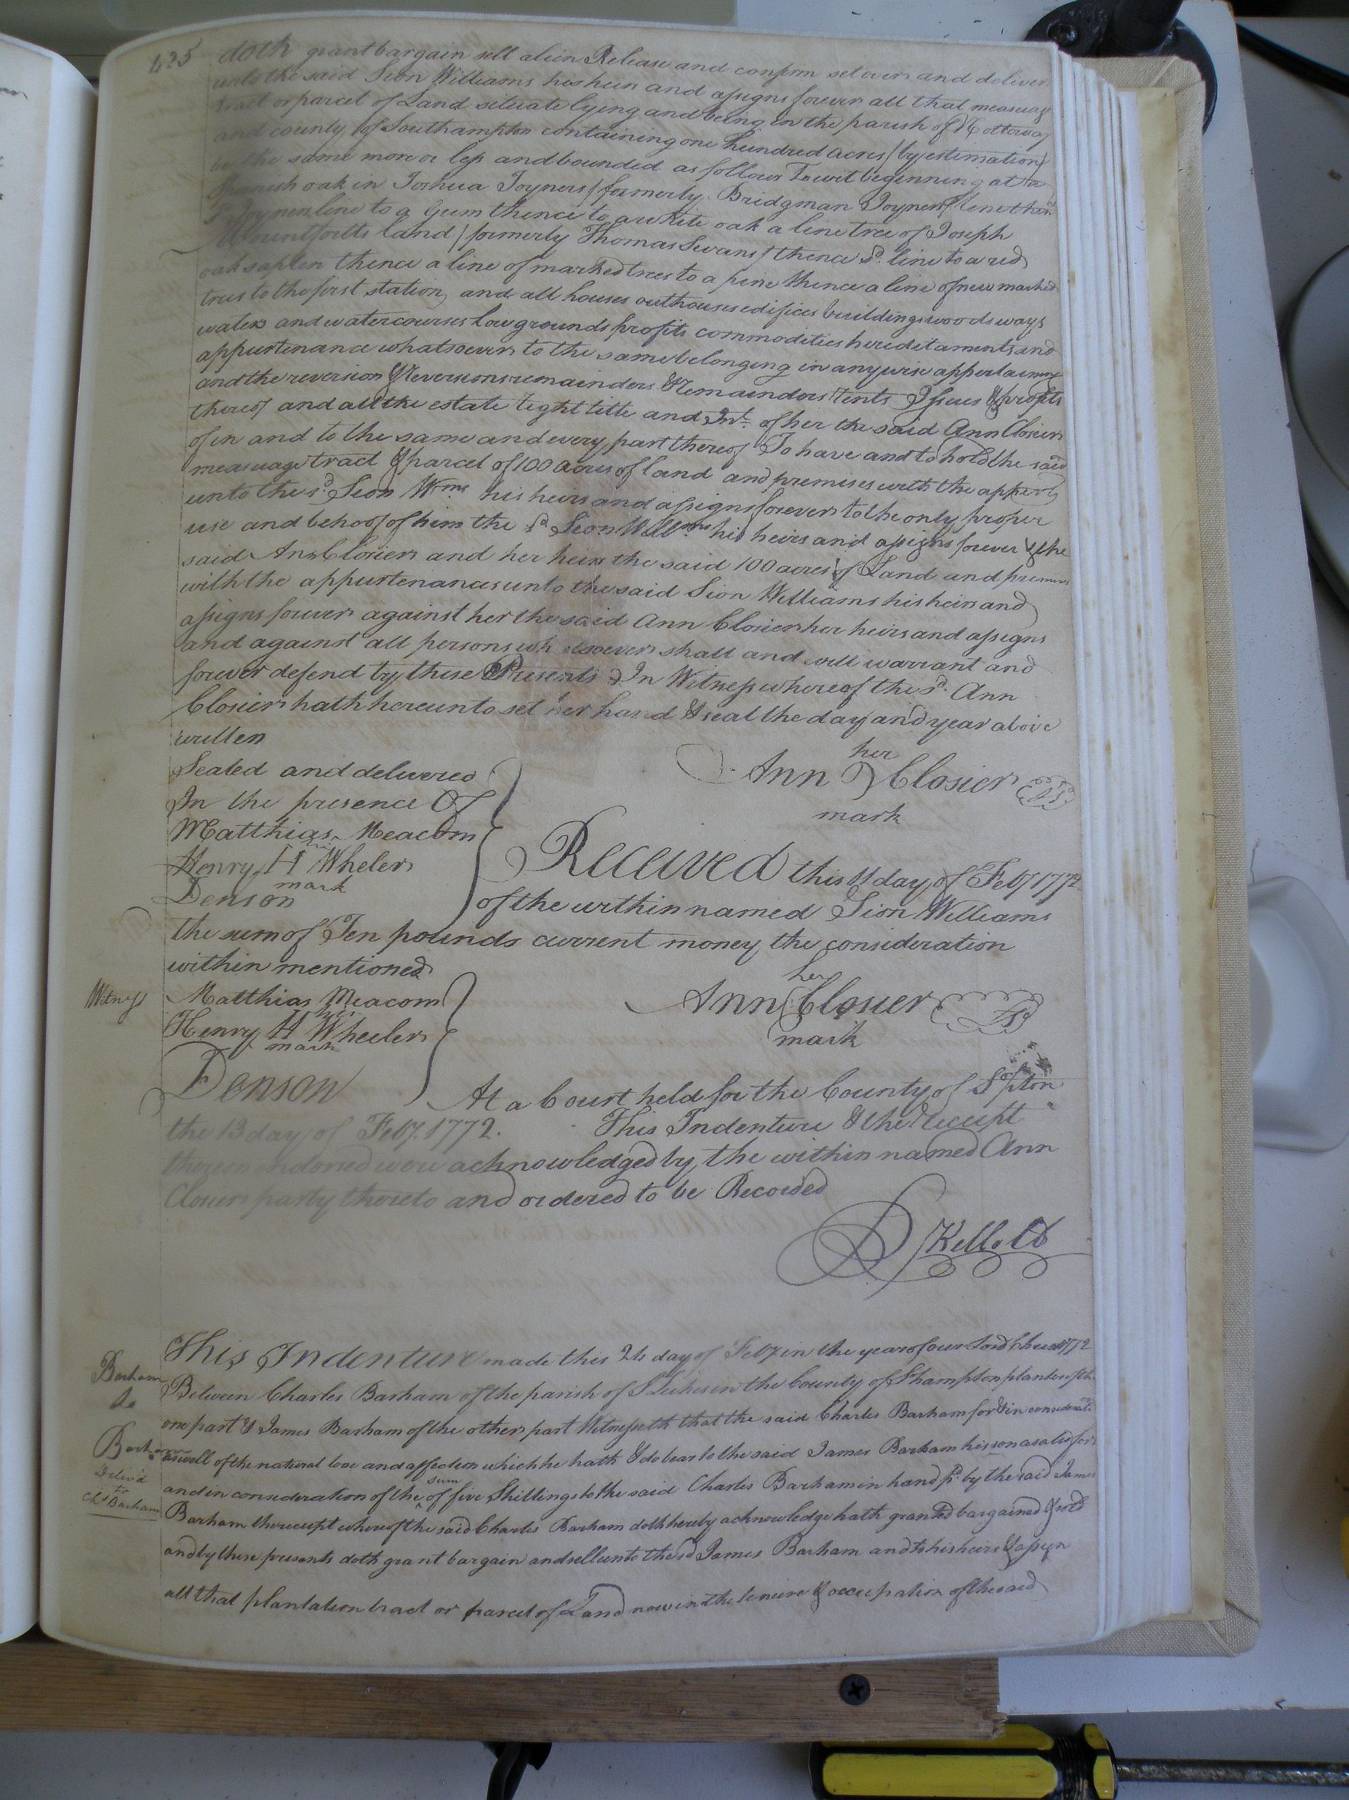 425
doth grant bargain sell alien Release and confirm set over and deliver
unto the said Sion Williams his heirs and assigns forever all that messuag
tract or parcel of Land situate lying and being in the parish of Nottoway
and county of Southampton containing one hundred acres (by estimation)
be the same more or less and bounded as follows Towit beginning at a
Spanish oak in Joshua Joyners (formerly Bridgman Joyners) line thence
Joyners line to a Gum thence to a white oak a line tree of Joseph
Mountfortts land (formerly Thomas Swans) thence sd. line to a red
oak saplen thence a line of marked trees to a pine thence a line of new marked
trees to the first station, and all houses outhouses edifices buildings woods ways
waters and watercourses low grounds profits commodities hereditaments and
appurtenance whatsoever to the same belonging in anywise appertaining
and the reversion & reversions remainders & remainders rents Issues & profits
thereof and all the estate right title and Int. of her the said Ann Closier
of in and to the same and every part thereof To have and to hold the said
messuage tract & parcel of 100 acres of land and premises with the appert
unto the sd. Sion Wms his heirs and assigns forever to the only proper
use and behoof of him the sd Sion Willms his heirs and assigns forever & the
said Ann Closier and her heirs the said 100 acres of Land and premises
with the appurtenances unto the said Sion Williams his heirs and
assigns forever against her the said Ann Closier her heirs and assigns
and against all persons whatsoever shall and will warrant and
forever defend by these Presents In Witness whereof the sd. Ann
Closier hath hereunto set her hand & seal the day and year above
written
Sealed and delivered
In the presence Of
Matthias Meacom
Henry H Wheler
mark
Denson
her
Ann Closier LS
mark
Received this 11 day of Feby 1772
of the within named Sion Williams
the sum of Ten pounds current money the consideration
within mentioned
Witness Matthias Meacom
his
Henry H Wheeler
mark
Denson
her
Ann Closier LS
mark
At a Court held for the County of Sopton
the 13 day of Feby. 1772. This Indenture & the receipt
thereon indorsed were acknowledged by the within named Ann
Closier party thereto and ordered to be Recorded
R Kello Ct
This Indenture made this 24 day of Feby in the year of our Lord Christ 1772
Barham
to
Barham
Deliv'd
to
Chs Barham
Between Charles Barham of the parish of St Lukes in the County of Shampton planter of the
one part & James Barham of the other part Witnesseth that the said Charles Barham for & in considerat.
aswell of the natural love and affection which he hath & do bear to the said James Barham his son as also for
and in consideration of the sum of five Shillings to the said Charles Barham in hand pd. by the said James
Barham the receipt whereof the said Charles Barham doth hereby acknowledge hath granted bargained & sold
and by these presents doth grant bargain and sell unto the sd James Barham and to his heirs & assign
all that plantation tract or parcel of Land now in the tenure & occupation of the said